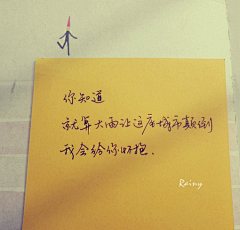 你知道
就算大雨让这座城市颠倒
我会给你怀抱.
Rainy